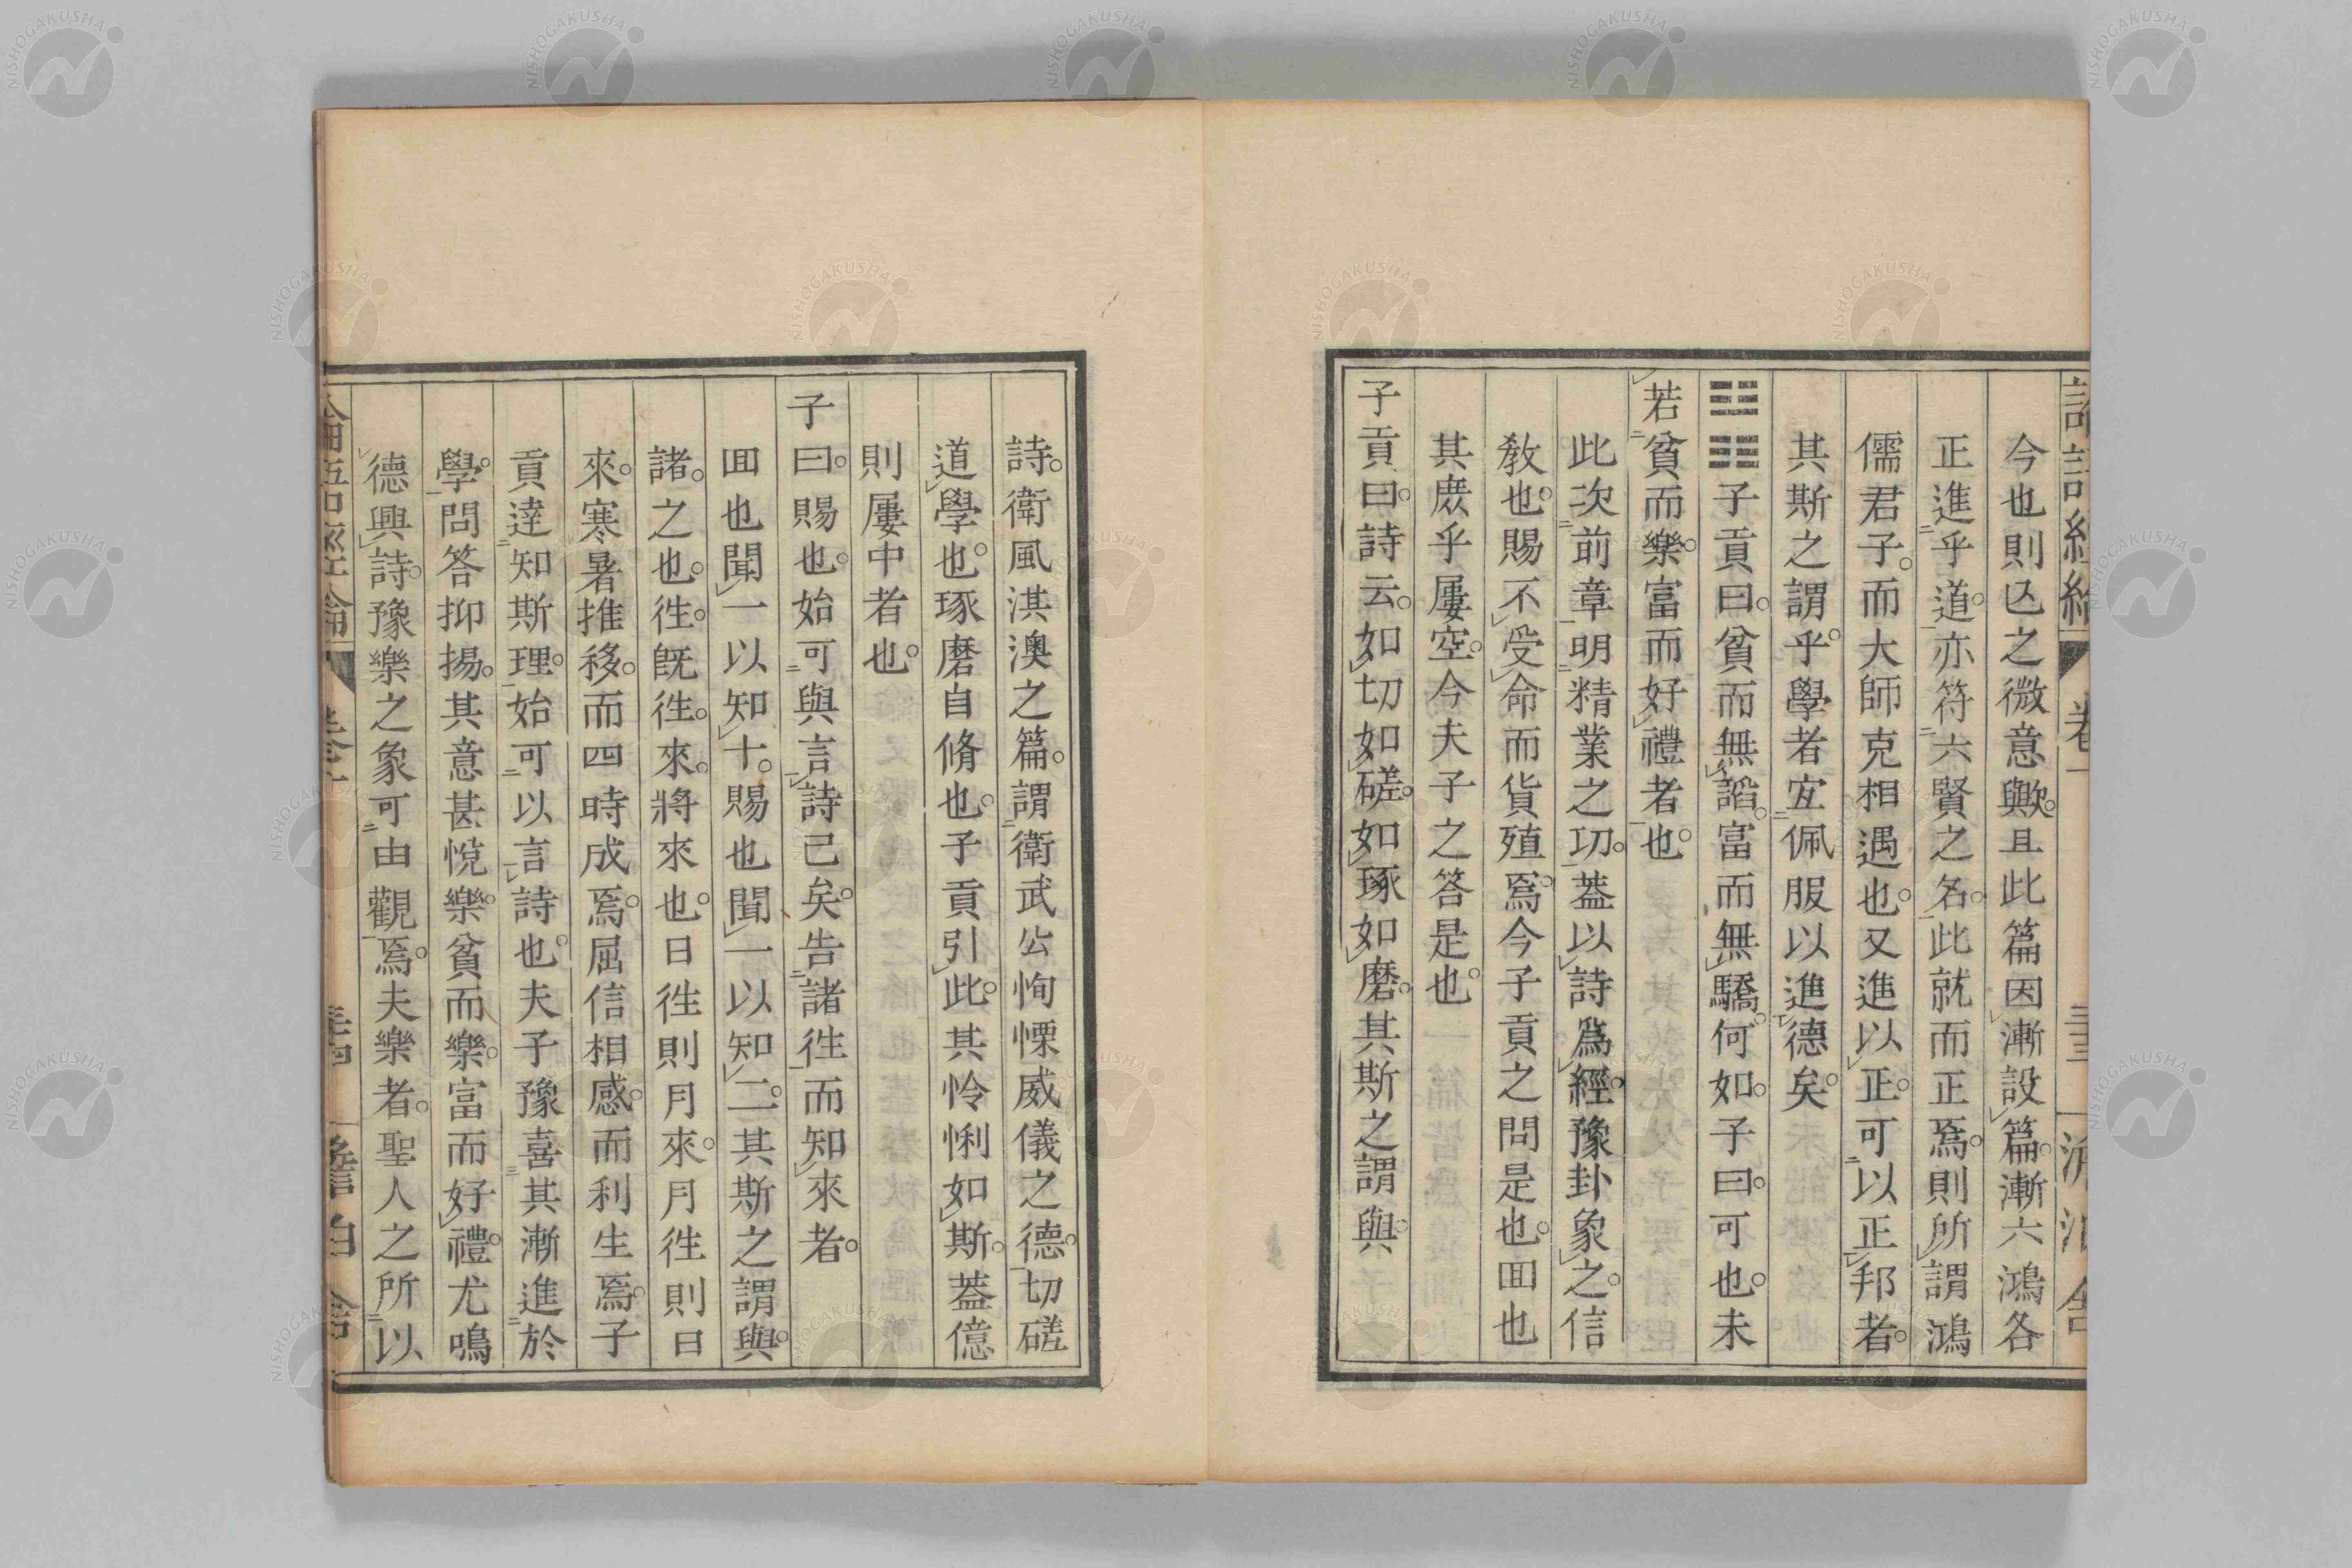 今也則亾之微意歟且此篇因漸設篇漸六鴻各
正進乎道亦符六賢之名此就而正焉則所謂鴻
儒君子而大師克相遇也又進以正可以正邦者
其斯之謂乎學者宐佩服以進德矣
䷏子貢曰貧而無諂富而無驕何如子曰可也未
若貧而樂富而好禮者也
此次前章明精業之功葢以詩爲經豫卦象之信
敎也賜不受命而貨殖焉今子貢之問是也囬也
其庻乎屢空今夫子之答是也
子貢曰詩云如切如磋如琢如磨其斯之謂與
詩衛風淇澳之篇謂衛武公恂慄威儀之德切磋
道學也琢磨自脩也子貢引此其怜悧如斯葢億
則屢中者也
子曰賜也始可與言詩己矣告諸徃而知來者
囬也聞一以知十賜也聞一以知二其斯之謂與
諸之也徃旣徃來將來也日徃則月來月徃則日
來寒暑推移而四時成焉屈信相感而利生焉子
貢達知斯理始可以言詩也夫子豫喜其漸進於
學問答抑揚其意甚悅樂貧而樂富而好禮尤鳴
德興詩豫樂之象可由觀焉夫樂者聖人之所以